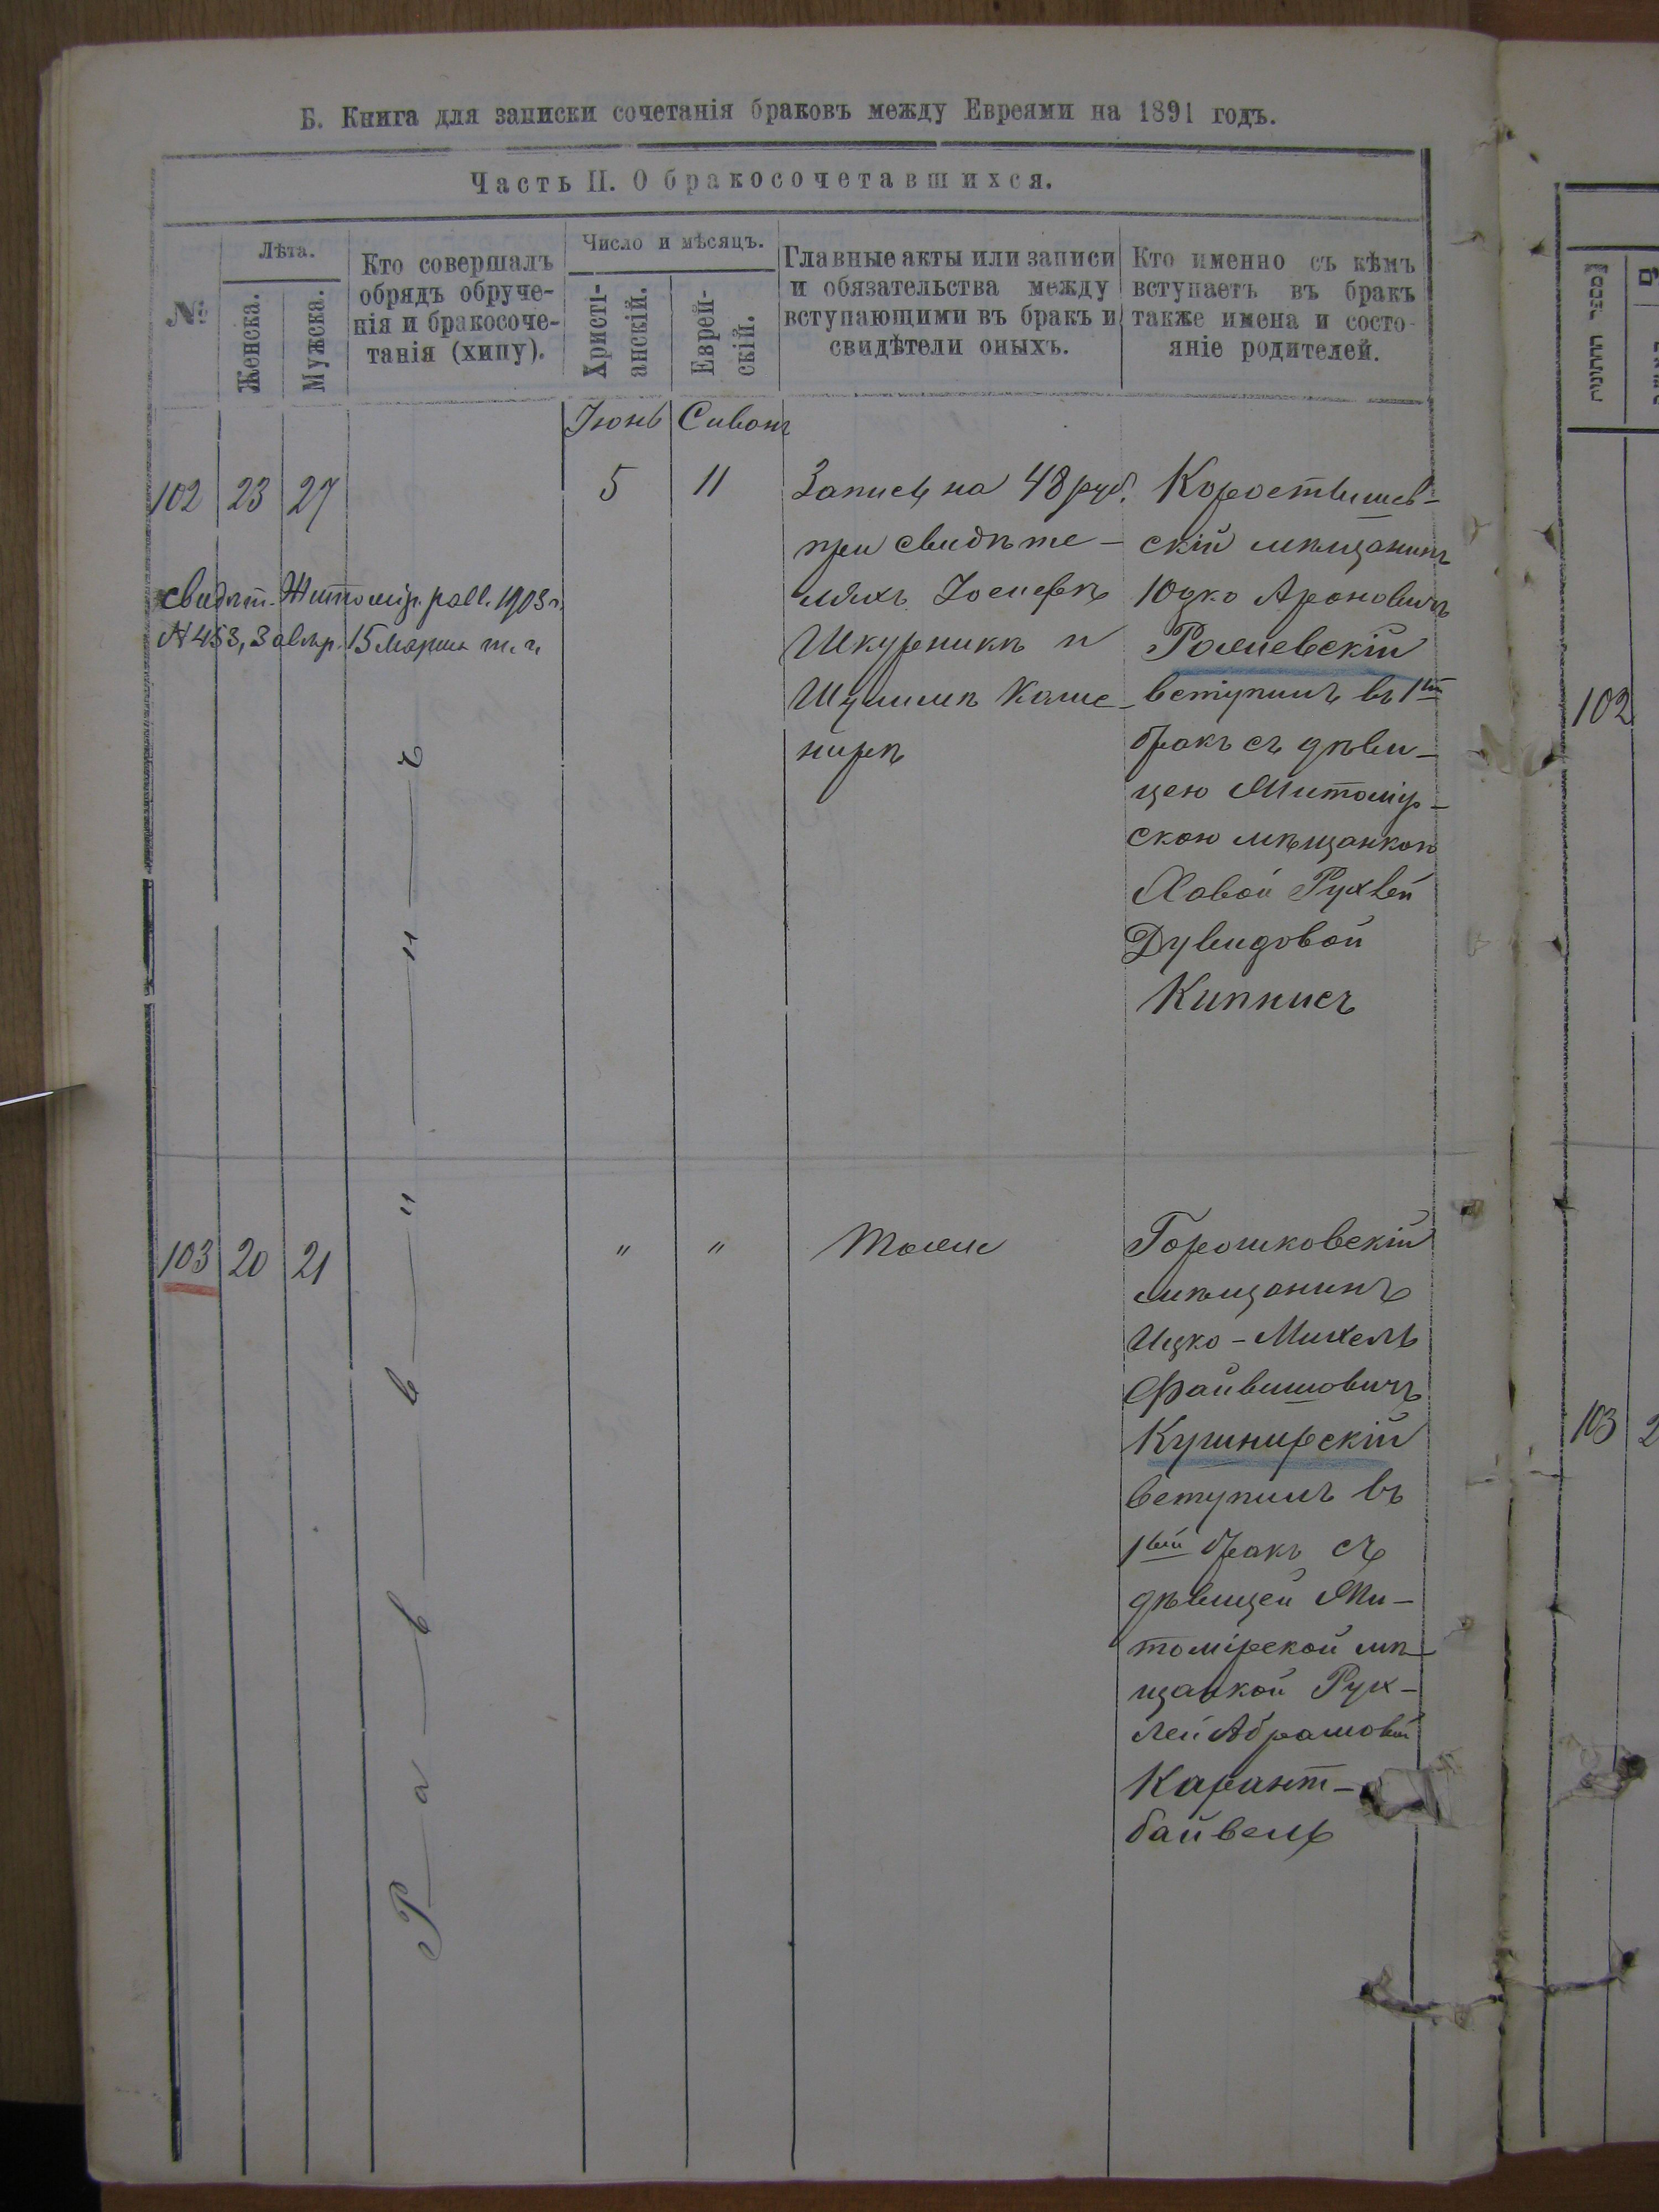 Б. Книга для записки сочетанія браковъ между Евреями на 1891 годъ.
Часть II. О бракосочетавшихся.
№
Лѣта.
Женска.
Мужска.
Кто совершалъ
обрядъ обруче-
нія и бракосоче-
танія (хипу).
Число и мѣсяцъ.
Христі-
анскій.
Еврей-
скій.
Главные акты или записи
и обязательства между
вступающими въ бракъ и
свидѣтели оныхъ.
Кто именно съ кѣмъ
вступаетъ въ бракъ
также имена и состо-
яніе родителей.
Іюнь Сиванъ
102 23 27
5 11
Запись на 48 руб.
при свидѣте-
ляхъ Іосифѣ
Шкурникѣ и
Шулимѣ Каше-
нирѣ
Коростышев-
скій мѣщанинъ
Юдко Ароновичъ
вступилъ въ 1ый
бракъ съ дѣви-
цею Житомір-
скою мѣщанкою
Хавой Рухлей
Дувидовой
Кипнисъ
свидѣт. Житомір. равв. 1903 г.
№ 453, завѣр. 15 марта т. г.
Р а в в и н ъ
103 20 21
" "
Тоже
Горошковскій
мѣщанинъ
Ицко-Михель
Файвишовичъ
Кушнирскій
вступилъ въ
1ый бракъ съ
дѣвицей Жи-
томірской мѣ-
щанкой Рух-
лей Абрамовой
Карант-
байвель
מספר החתונות
102
103 2